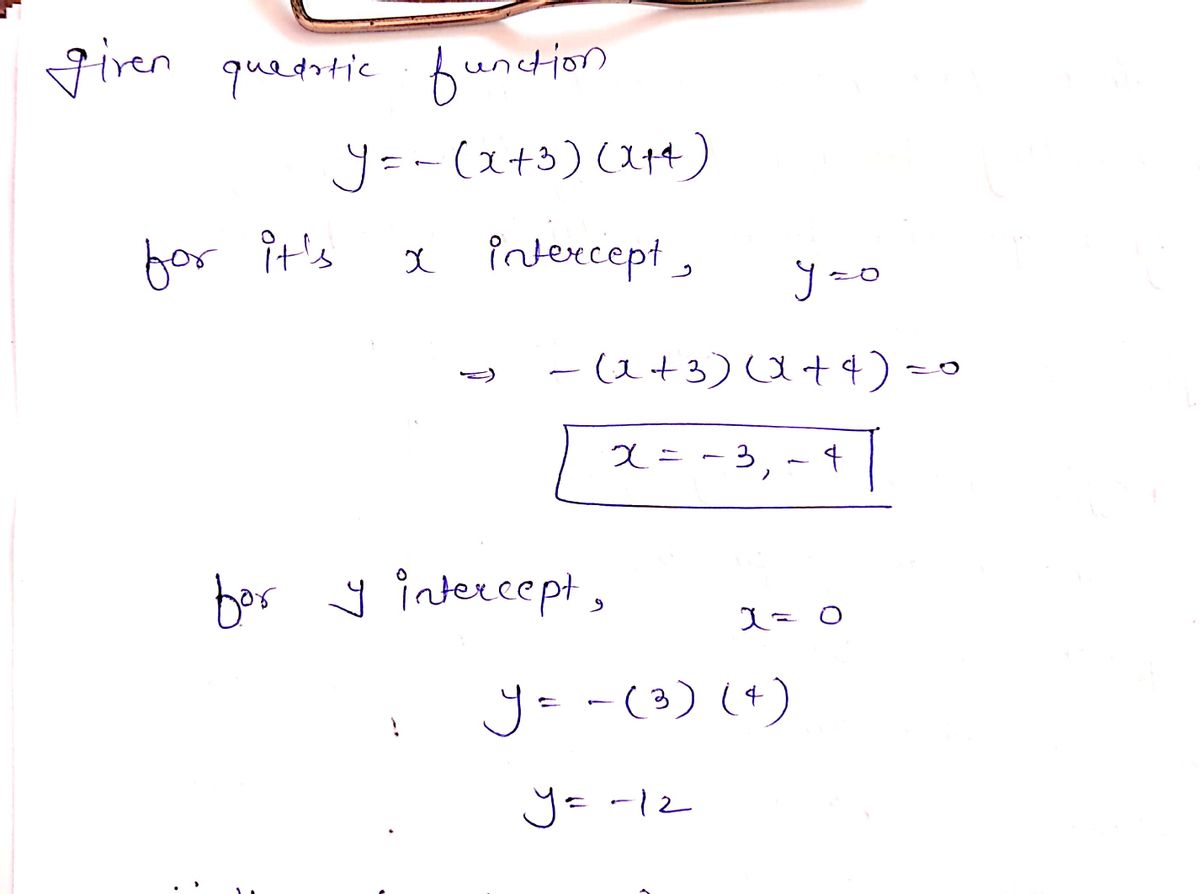 given quedrtic function
y = - (x+3) (x+4)
for it's x intercept, y=0
⇒ - (x+3) (x+4) =0
x = -3, -4
for y intercept, x= 0
y= -(3) (4)
y= -12